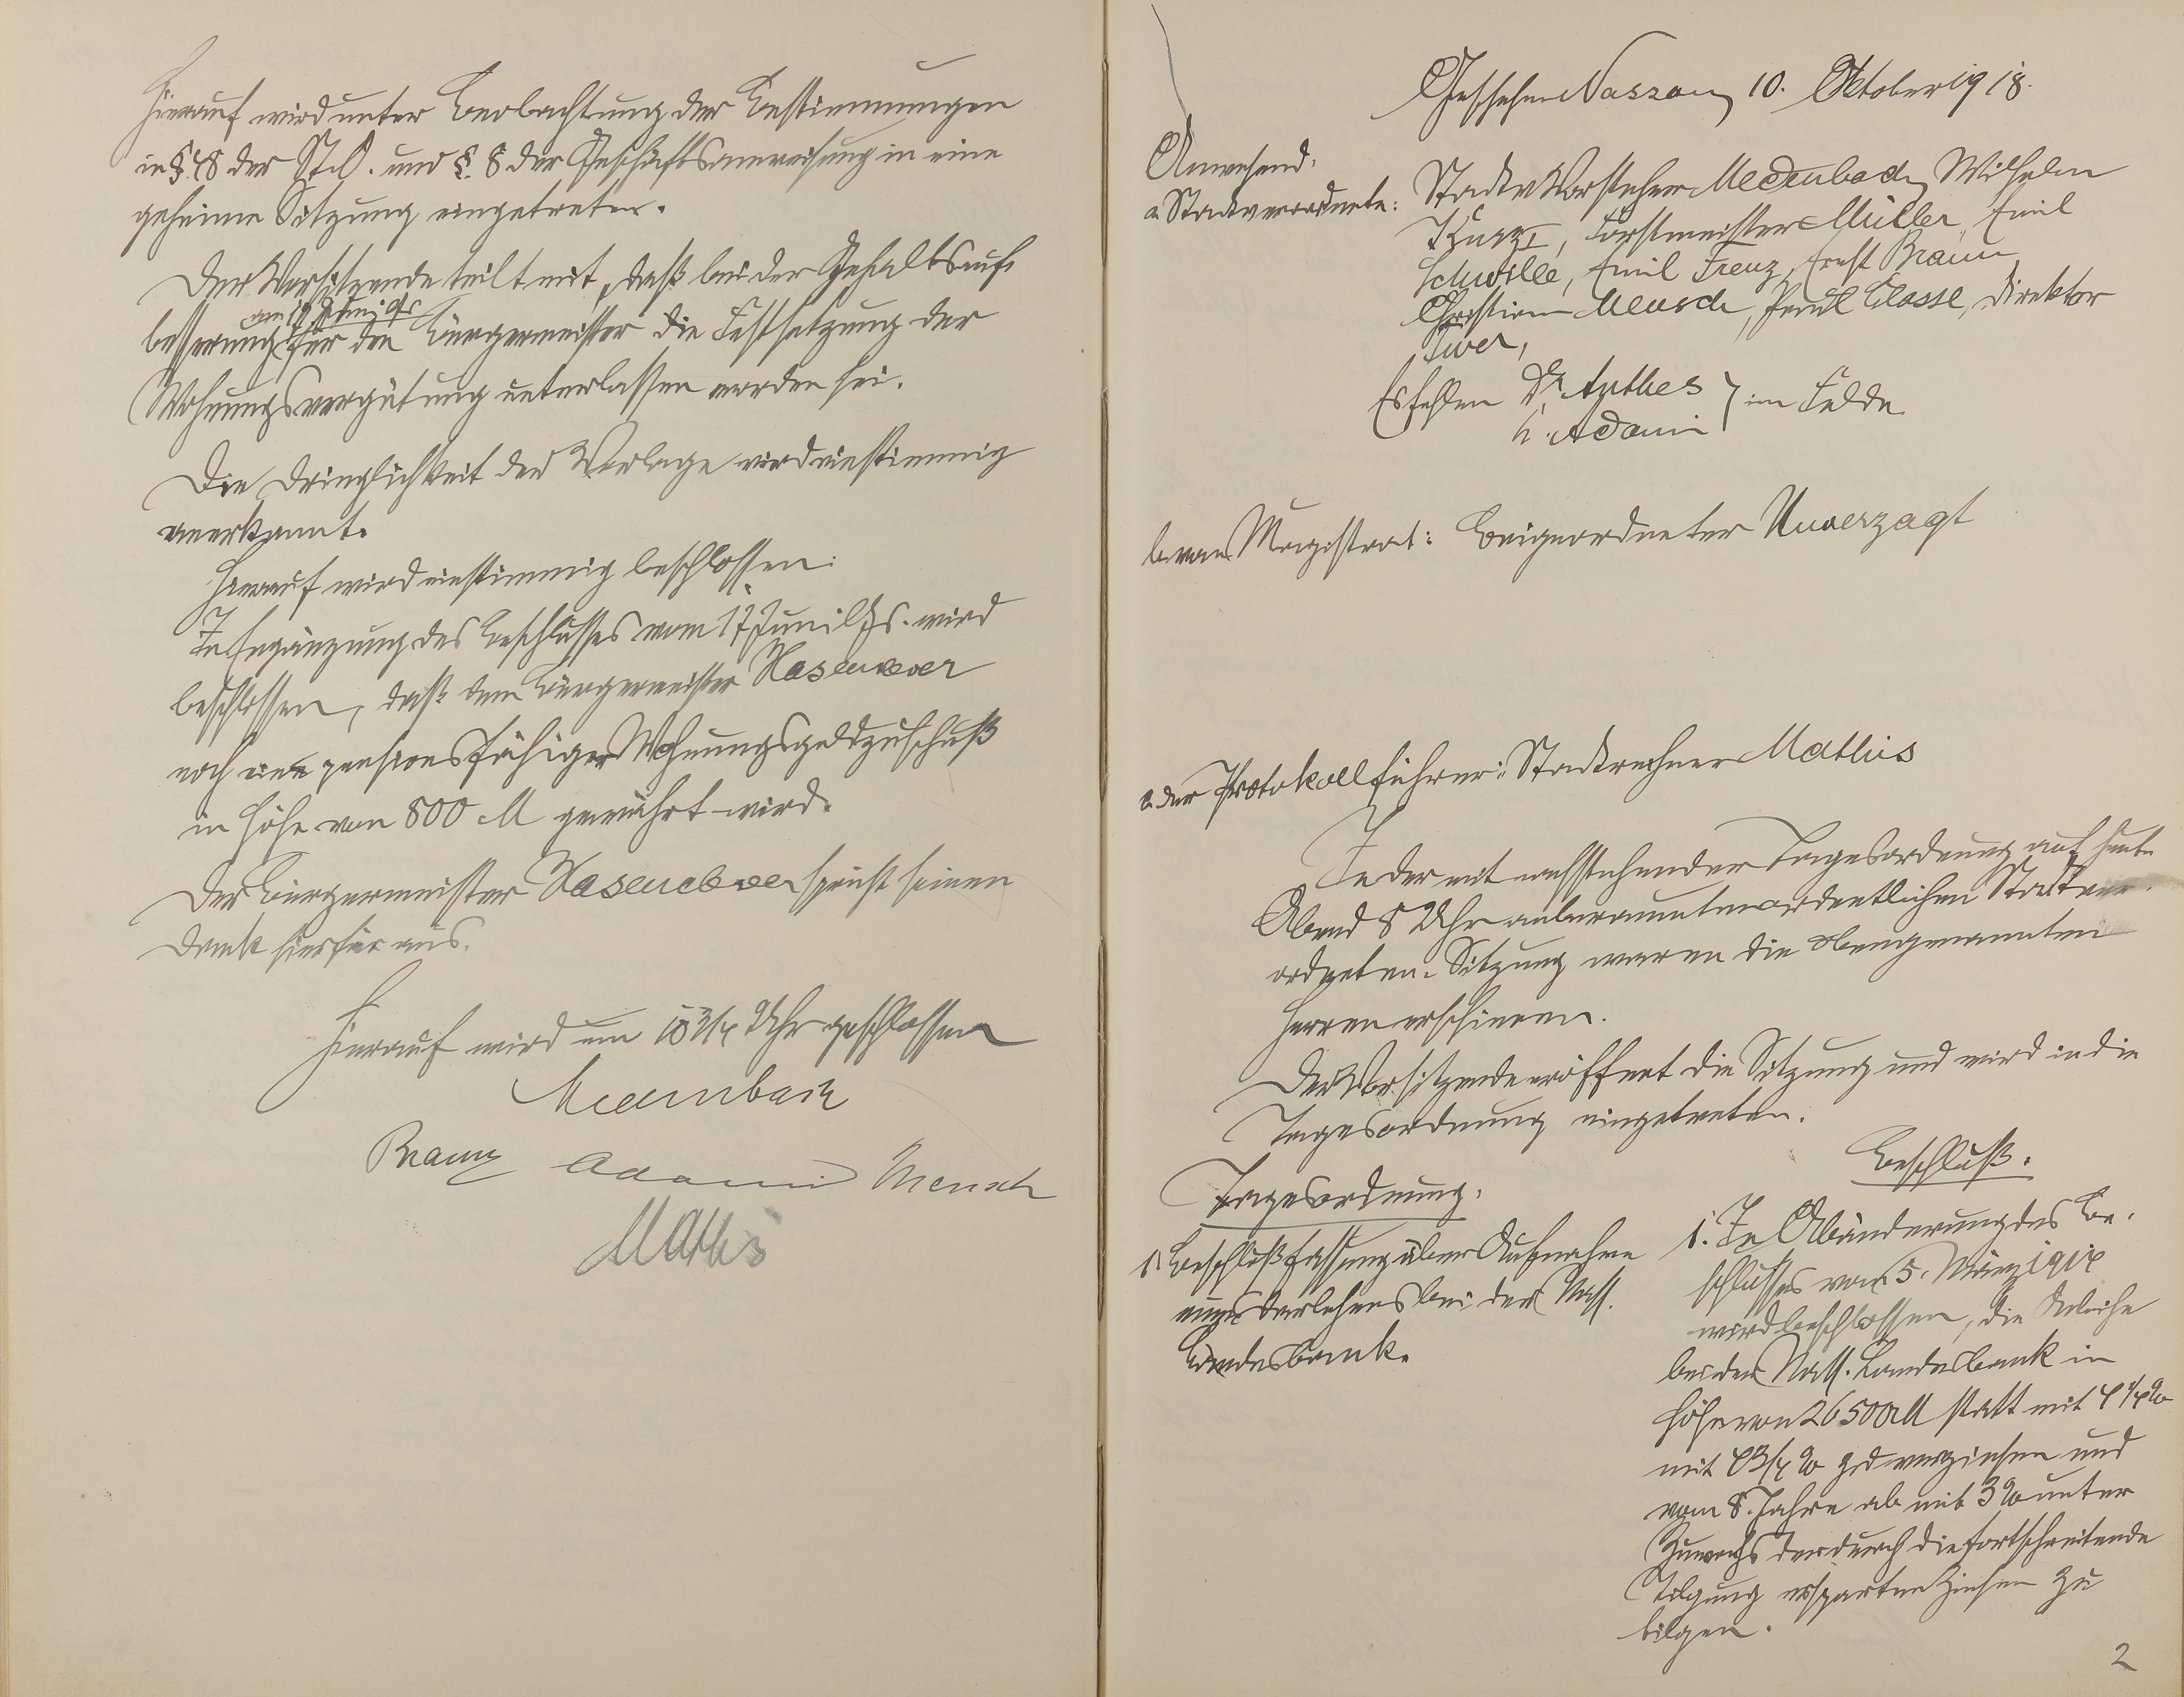 Hierauf wird unter Beobachtung der Bestimmungen
in §. 48 der St.O. und §. 8 der Geschäftsanweisung in eine
geheime Sitzung eingetreten.
Der Vorsitzende teilt mit, daß bei der Gehaltsauf-
am 17. Juni ds
besserung für den Bürgermeister die Festsetzung der
Wohnungsvergütung unterlassen worden sei.
Die Dringlichkeit der Vorlage wird einstimmig
anerkannt.
Hierauf wird einstimmig beschlossen:
In Ergänzung des Beschlusses vom 17. Juni lfs. wird
beschlossen, daß dem Bürgermeister Hasenclever
noch ein pensionsfähiger Wohnungsgeldzuschuß
in Höhe von 800 M gewährt wird.
Der Bürgermeister Hasenclever spricht seinen
Dank hierfür aus.
Hierauf wird um 10 3/4 Uhr geschlossen
Medenbach
Braun Adami Meusch
Mathis
Geschehen Nassau, 10. Oktober 1918.
Anwesend:
a Stadtverordnete: Stadtv Vorsteher Medenbach, Wilhelm
Kurz I, Forstmeister Müller, Emil
Schwille, Emil Trenz, Ernst Braun
Christian Meusch, Paul Classe, Direktor
Twer,
Es fehlen Dr. Anthes
H. Adami } im Felde
b. vom Magistrat: Beigeordneter Unverzagt
c. der Protokollführer: Stadtrechner Mathis
In der mit nachstehender Tagesordnung auf heute
Abend 8 Uhr anberaumten ordentlichen Stadtver-
ordneten-Sitzung waren die obengenannten
Herren erschienen.
Der Vorsitzende eröffnet die Sitzung und wird in die
Tagesordnung eingetreten.
Tagesordnung.
1. Beschlußfassung über Aufnahme
eines Darlehens bei der Nass.
Landesbank.
Beschluß.
1. In Abänderung des Be-
schlusses vom 5. März 1914
wird beschlossen, die Anleihe
bei der Nass. Landesbank in
Höhe von 26500 M statt mit 4 1/4 %
mit 4 3/4 % zu verzinsen und
vom 8. Jahre ab mit 3 % unter
Zuwachs der durch die fortschreitende
Tilgung ersparten Zinsen zu
tilgen.
2